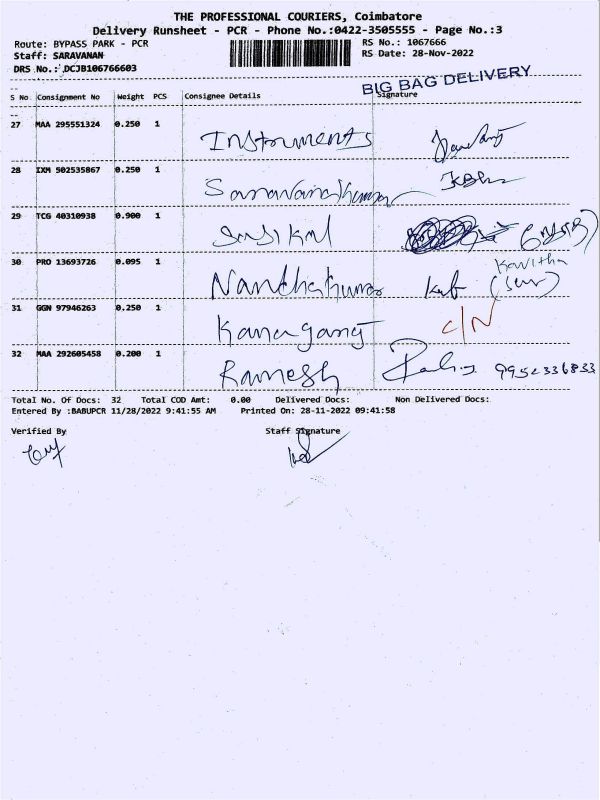 THE PROFESSIONAL COURIERS, Coimbatore
Delivery Runsheet - PCR - Phone No.:0422-3505555 - Page No.:3
Route: BYPASS PARK - PCR
RS No.: 1067666
Staff: SARAVANAN
RS Date: 28-Nov-2022
DRS No.: DCJB106766603
BIG BAG DELIVERY
S No Consignment No Weight PCS Consignee Details Signature
27 MAA 295551324 0.250 1 Instruments
28 IXM 502535867 0.250 1 Saravanakumar
29 TCG 40310938 0.900 1 Sasikal
30 PRO 13693726 0.095 1 Nandhakumar Kavitha
31 GGN 97946263 0.250 1 Kanagaraj C/N
32 MAA 292605458 0.200 1 Ramesh 9952336833
Total No. Of Docs: 32 Total COD Amt: 0.00 Delivered Docs: Non Delivered Docs:
Entered By :BABUPCR 11/28/2022 9:41:55 AM Printed On: 28-11-2022 09:41:58
Verified By Staff Signature